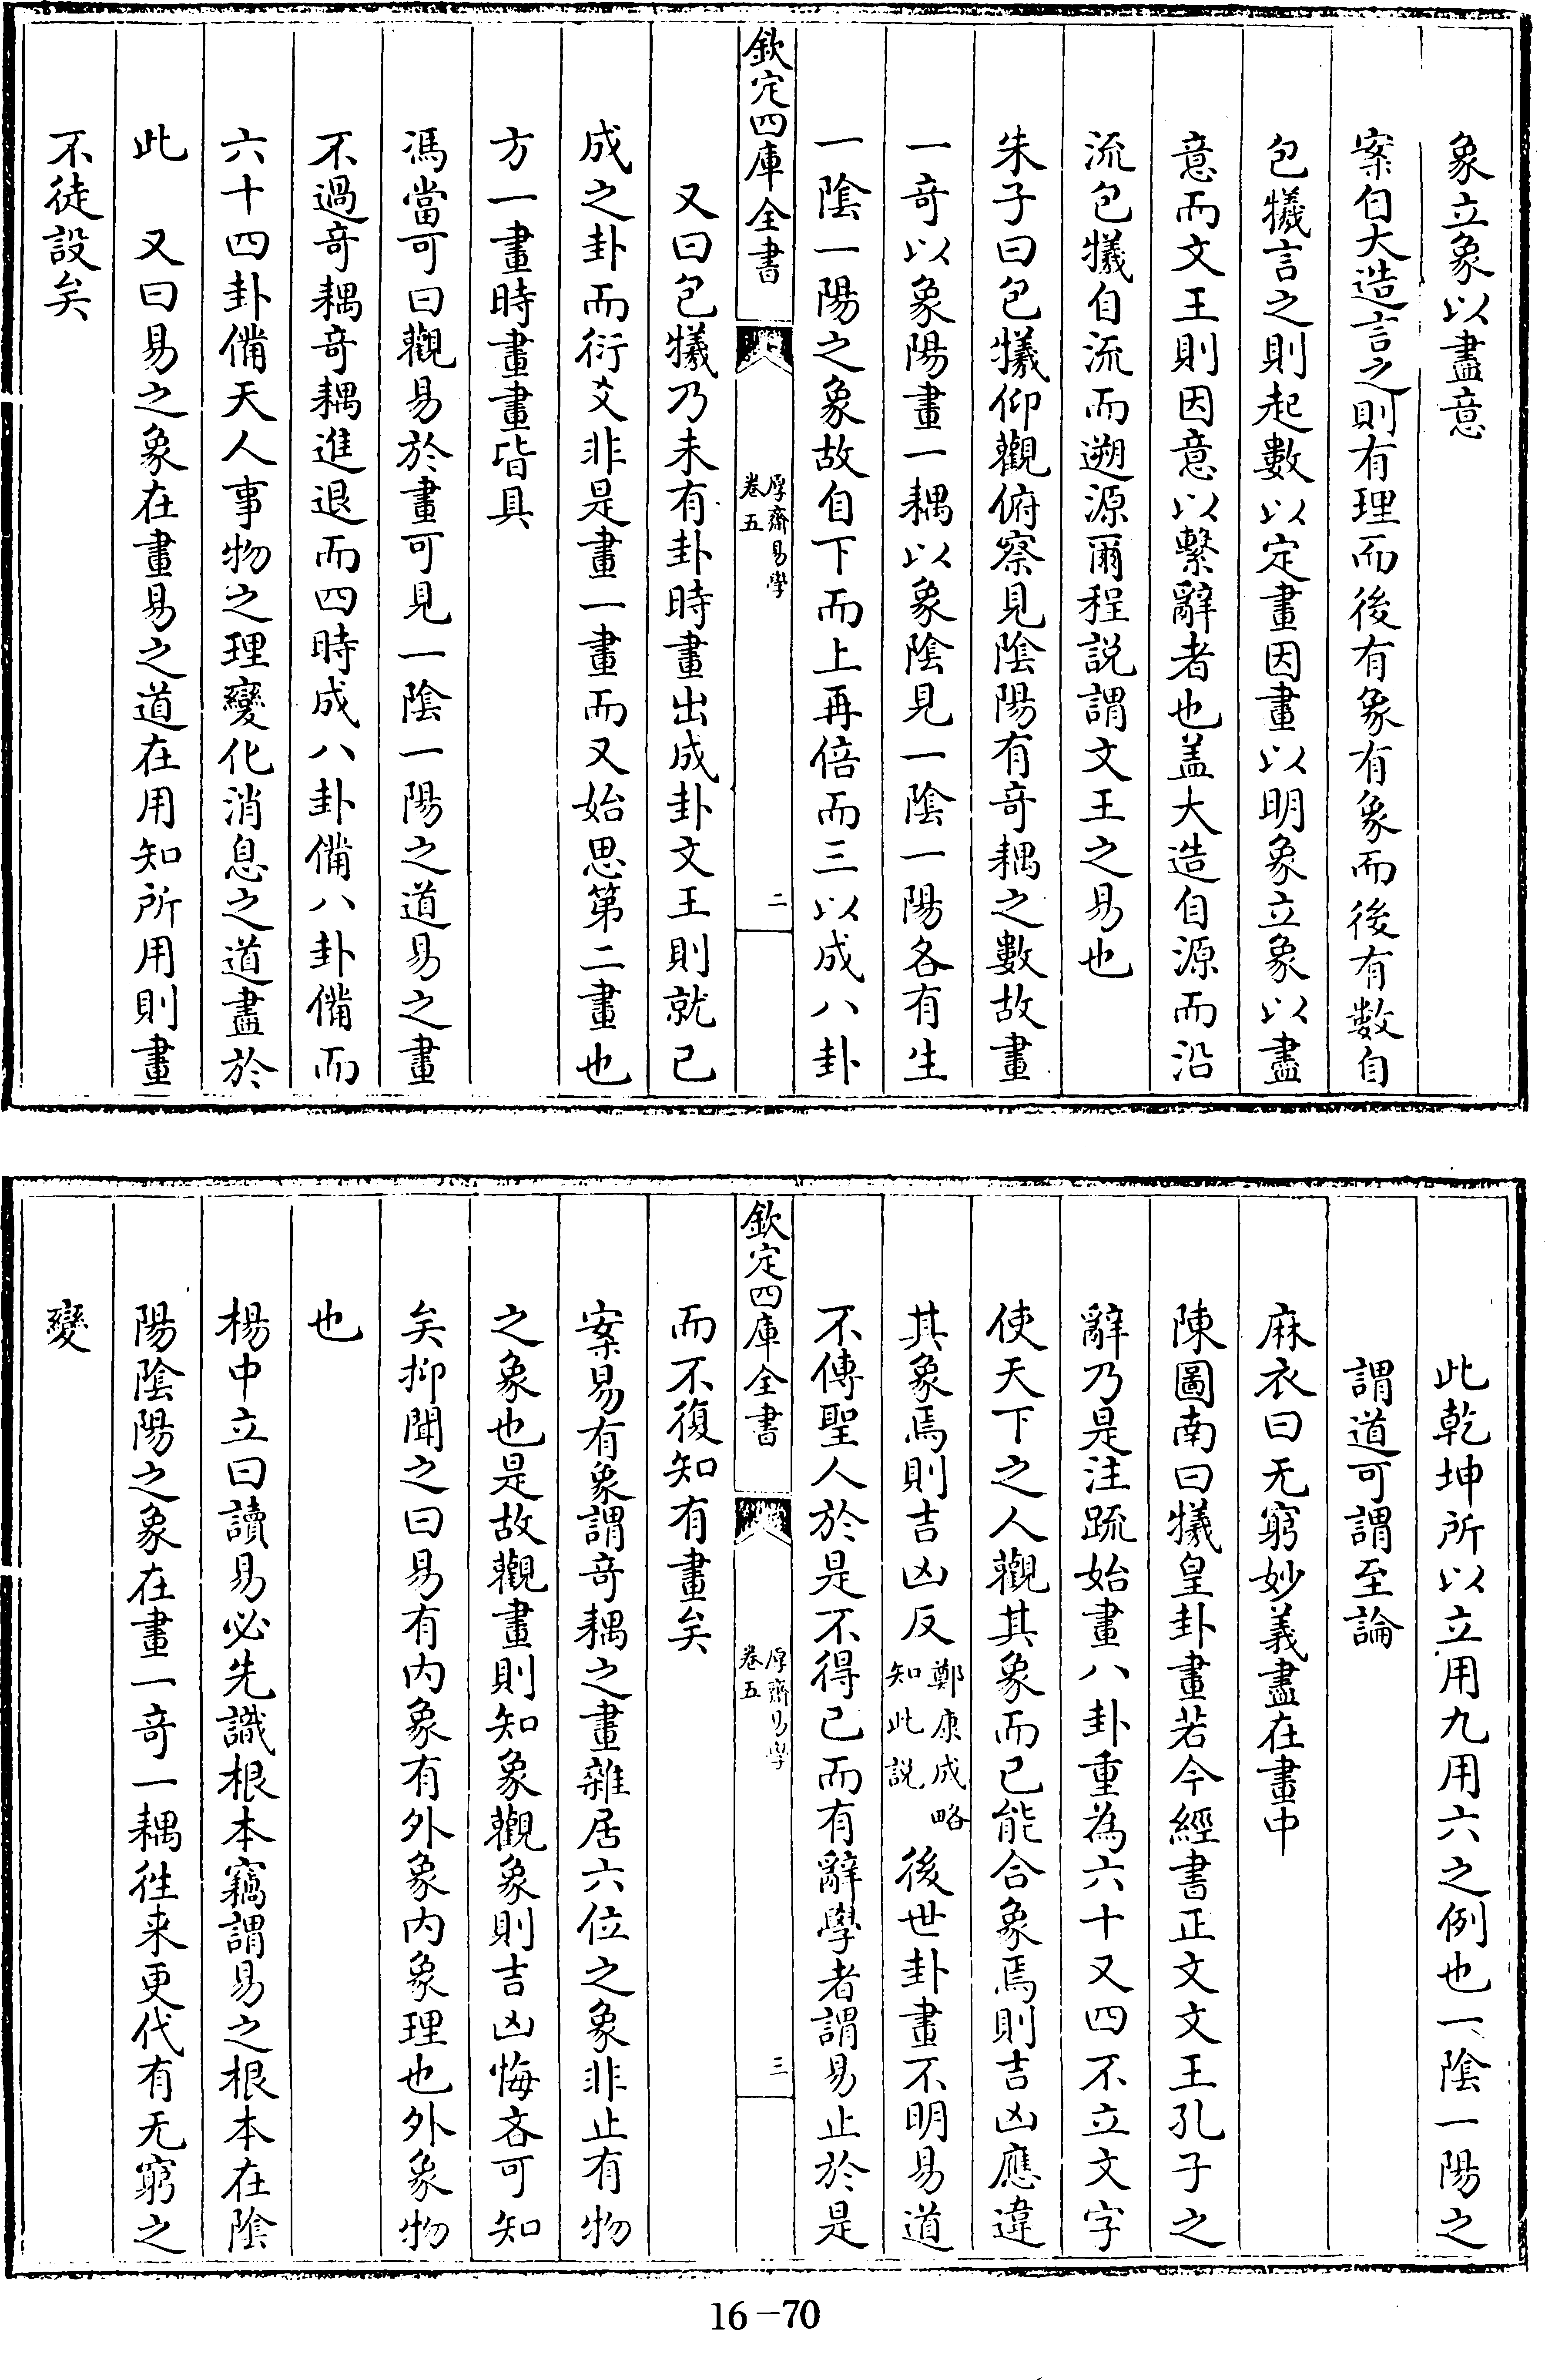 象立象以盡意
案自大造言之則有理而後有象有象而後有數自
包犧言之則起數以定畫因畫以明象立象以盡
意而文王則因意以繫辭者也盖大造自源而沿
流包犧自流而遡源爾程説謂文王之易也
朱子曰包犧仰觀俯察見隂陽有竒耦之數故畫
一竒以象陽畫一耦以象隂見一隂一陽各有生
一隂一陽之象故自下而上再倍而三以成八卦
欽定四庫全書
厚齋易學
卷五
二
又曰包犧乃未有卦時畫出成卦文王則就已
成之卦而衍爻非是畫一畫而又始思第二畫也
方一畫時畫畫皆具
馮當可曰觀易於畫可見一隂一陽之道易之畫
不過竒耦竒耦進退而四時成八卦備八卦備而
六十四卦備天人事物之理變化消息之道盡於
此 又曰易之象在畫易之道在用知所用則畫
不徒設矣
此乾坤所以立用九用六之例也一隂一陽之
謂道可謂至論
麻衣曰无窮妙義盡在畫中
陳圖南曰犧皇卦畫若今經書正文文王孔子之
辭乃是注䟽始畫八卦重為六十又四不立文字
使天下之人觀其象而已能合象焉則吉凶應違
其象焉則吉凶反鄭康成略知此説後世卦畫不明易道
不傳聖人於是不得已而有辭學者謂易止於是
欽定四庫全書
厚齋易學
卷五
三
而不復知有畫矣
案易有象謂竒耦之畫雜居六位之象非止有物
之象也是故觀畫則知象觀象則吉凶悔吝可知
矣抑聞之曰易有内象有外象内象理也外象物
也
楊中立曰讀易必先識根本竊謂易之根本在隂
陽隂陽之象在畫一竒一耦徃来更代有无窮之
變
16-70